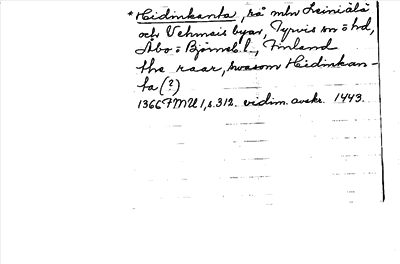 * Hidinkanta, rå mln Leiniälä
och Vehmais byar, Tyrvis sn ö hd,
Åbo o Björneb. l., Finland
the raar, swasom Hidinkan-
ta (?)
1366 FMU 1, s. 312. vidim. avskr. 1443.